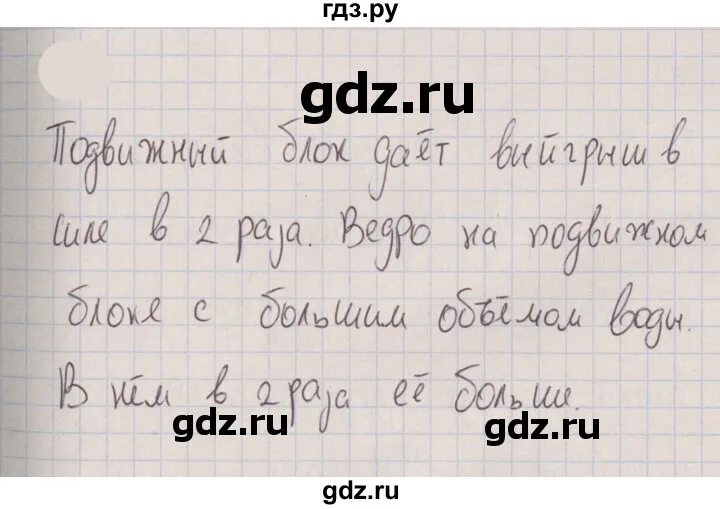 гдз.ру
gdz.ru
Подвижный блок даёт выйгрыш в
силе в 2 раза. Ведро на подвижном
блоке с большим объёмом воды.
В нём в 2 раза её больше.
gdz.ru
gdz.ru
gdz.ru